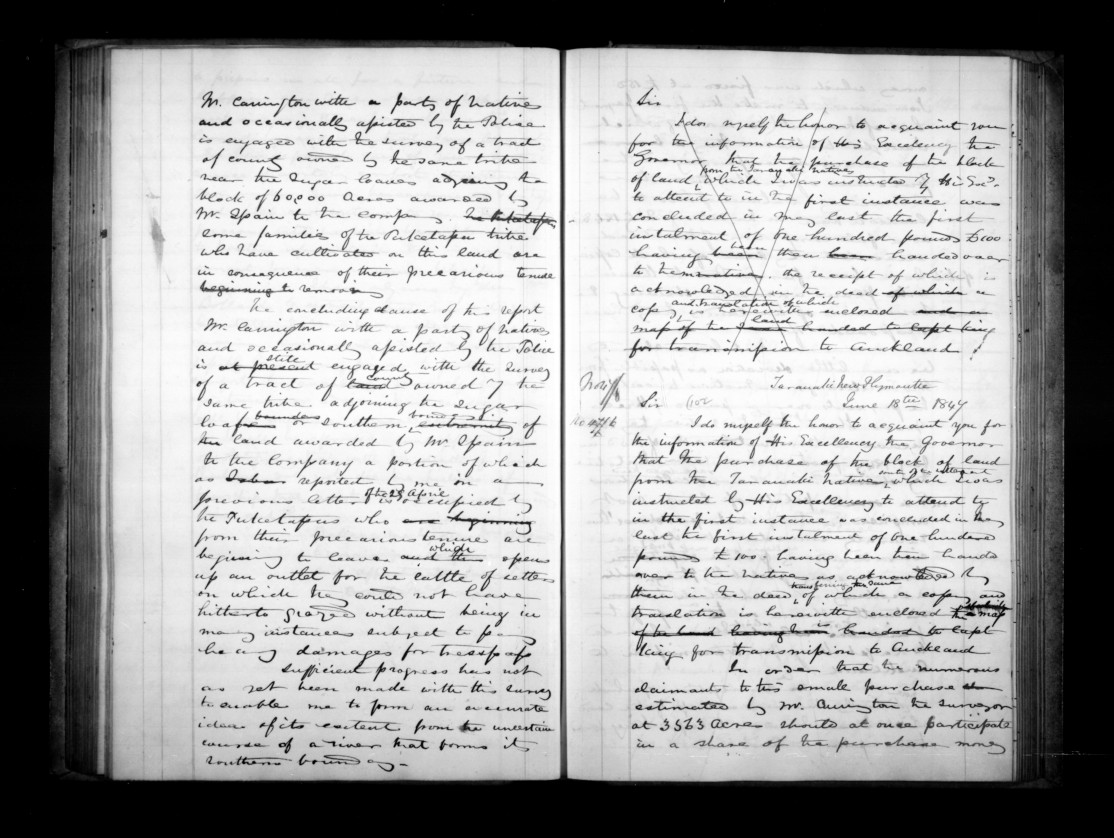 Mr. Carrington with a party of Natives
and occasionally assisted by the Police
is engaged with the survey of a tract
of country owned by the same tribe
near the Sugar loaves adjoining the
block of 60,000 Acres awarded by
Mr. Spain to the Company. The Puketapu
some families of the Puketapu tribe
who have cultivated on this land are
in consequence of their precarious tenure
beginning to remove
The concluding clause of this report
Mr. Carrington with a party of Natives
and occasionally assisted by the Police
still
is at present engaged with the survey
country
of a tract of land owned by the
same tribe adjoining the Sugar
boundary
loaves or southern extremity of
the land awarded by Mr. Spain
to the Company a portion of which
as reported by me in a
of the 29 April
previous letter is occupied by
the Puketapus who are beginning
from their precarious tenure are
which
begining to leave and this opens
up an outlet for the cattle of settlers
on which they could not have
hitherto grazed without being in
many instances subject to pay
heavy damages for tresspass
Sufficient progress has not
as yet been made with this survey
to enable me to form an accurate
idea of its extent from the uncertain
course of a river that forms its
southern boundary -
Sir
I do myself the honor to acquaint you
for the information of His Excellency the
Governor that the purchase of the block
from the Taranaki Natives
of land which I was instructed by His Excy.
to attend to in the first instance was
concluded in May last the first
instalment of One hundred pounds £100
been
having been then handed over
to the natives. the receipt of which is
acknowledged in the deed of which a
and translation of which
copy is herewith inclosed and a
land
map of the handed to Capt King
for transmission to Auckland
Taranaki New Plymouth
Sir June 18th 1847
I do myself the honor to acquaint you for
the information of His Excellency the Governor
that the purchase of the block of land
from the Taranaki Natives which I was
instructed by His Excellency to attend to
in the first instance was concluded in May
last the first instalment of One hundred
pounds £100. having been then handed
over to the Natives as acknowledged by
transferring the same
them in the deed of which a copy and
translation is herewith enclosed the map
of the land having been handed to Capt
King for transmission to Auckland
In order that the numerous
claimants to this small purchase
estimated by Mr. Carrington the surveyor
at 3563 Acres should at once participate
in a share of the purchase money